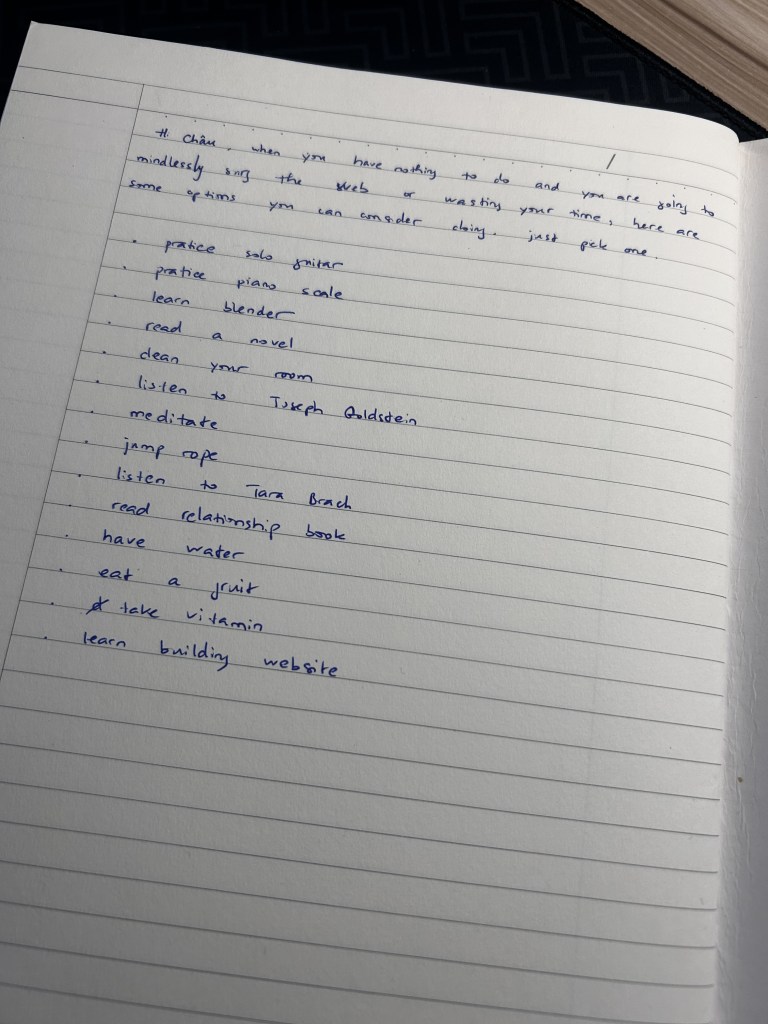 Hi Châu, when you have nothing to do and you are going to
mindlessly surf the web or wasting your time, here are
some options you can consider doing. just pick one.
· pratice solo guitar
· pratice piano scale
· learn blender
· read a novel
· clean your room
· listen to Joseph Goldstein
· meditate
· jump rope
· listen to Tara Brach
· read relationship book
· have water
· eat a fruit
· take vitamin
· learn building website